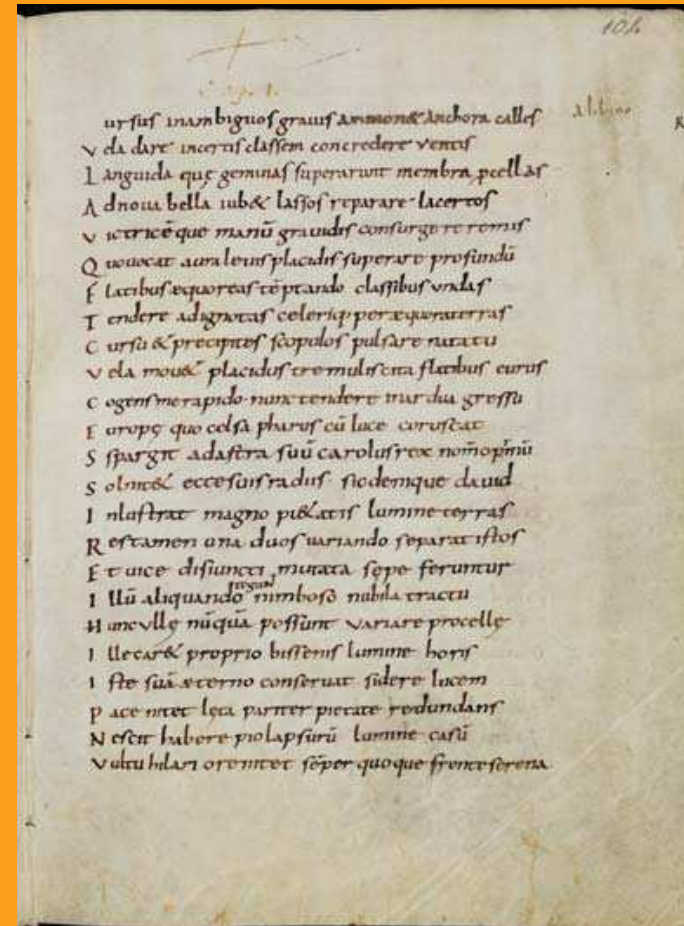 104
Cap. 1.
ursus inambiguos grauis ammon& Anchora calles
Alcuino
R
V ela dare incertis classem concredere ventis
L anguida quę geminas superarunt membra pcellas
A dnoua bella iub& lassos reparare lacertos
V ictricēque manū grauidis consurgere remis
Q uouocat aura leuis placidis superare profundū
F latibus, æquoreas tēptando classibus vndas
T endere adignotas celeriq; per æquora terras
C ursu & precipites scopolos pulsare natatu
V ela mou& placidus tremulis cita flatibus eurus
C ogens me rapido nunc tendere in ardua gressu
E uropę quo celsa pharus cū luce coruscat
S spargit adastra suū carolus rex nom̄
S ol nit& ecce suis radiis sic denique dauid
I nlustrat magno pi&atis lumine terras
R es tamen una duos uariando separat istos
E t uice disiuncti mutata sepe feruntur
tegunt
I llū aliquando nimboso nubila tractu
H unc vllę nūquā possunt variare procelle
I lle car& proprio bissenis lumine horis
I ste suā æterno conseruat sidere lucem
P ace nitet lęta pariter pietate redundans
N escit habere pio lapsurū lumine casū
V ultu hilari ore nitet sēper quoque fronte serena